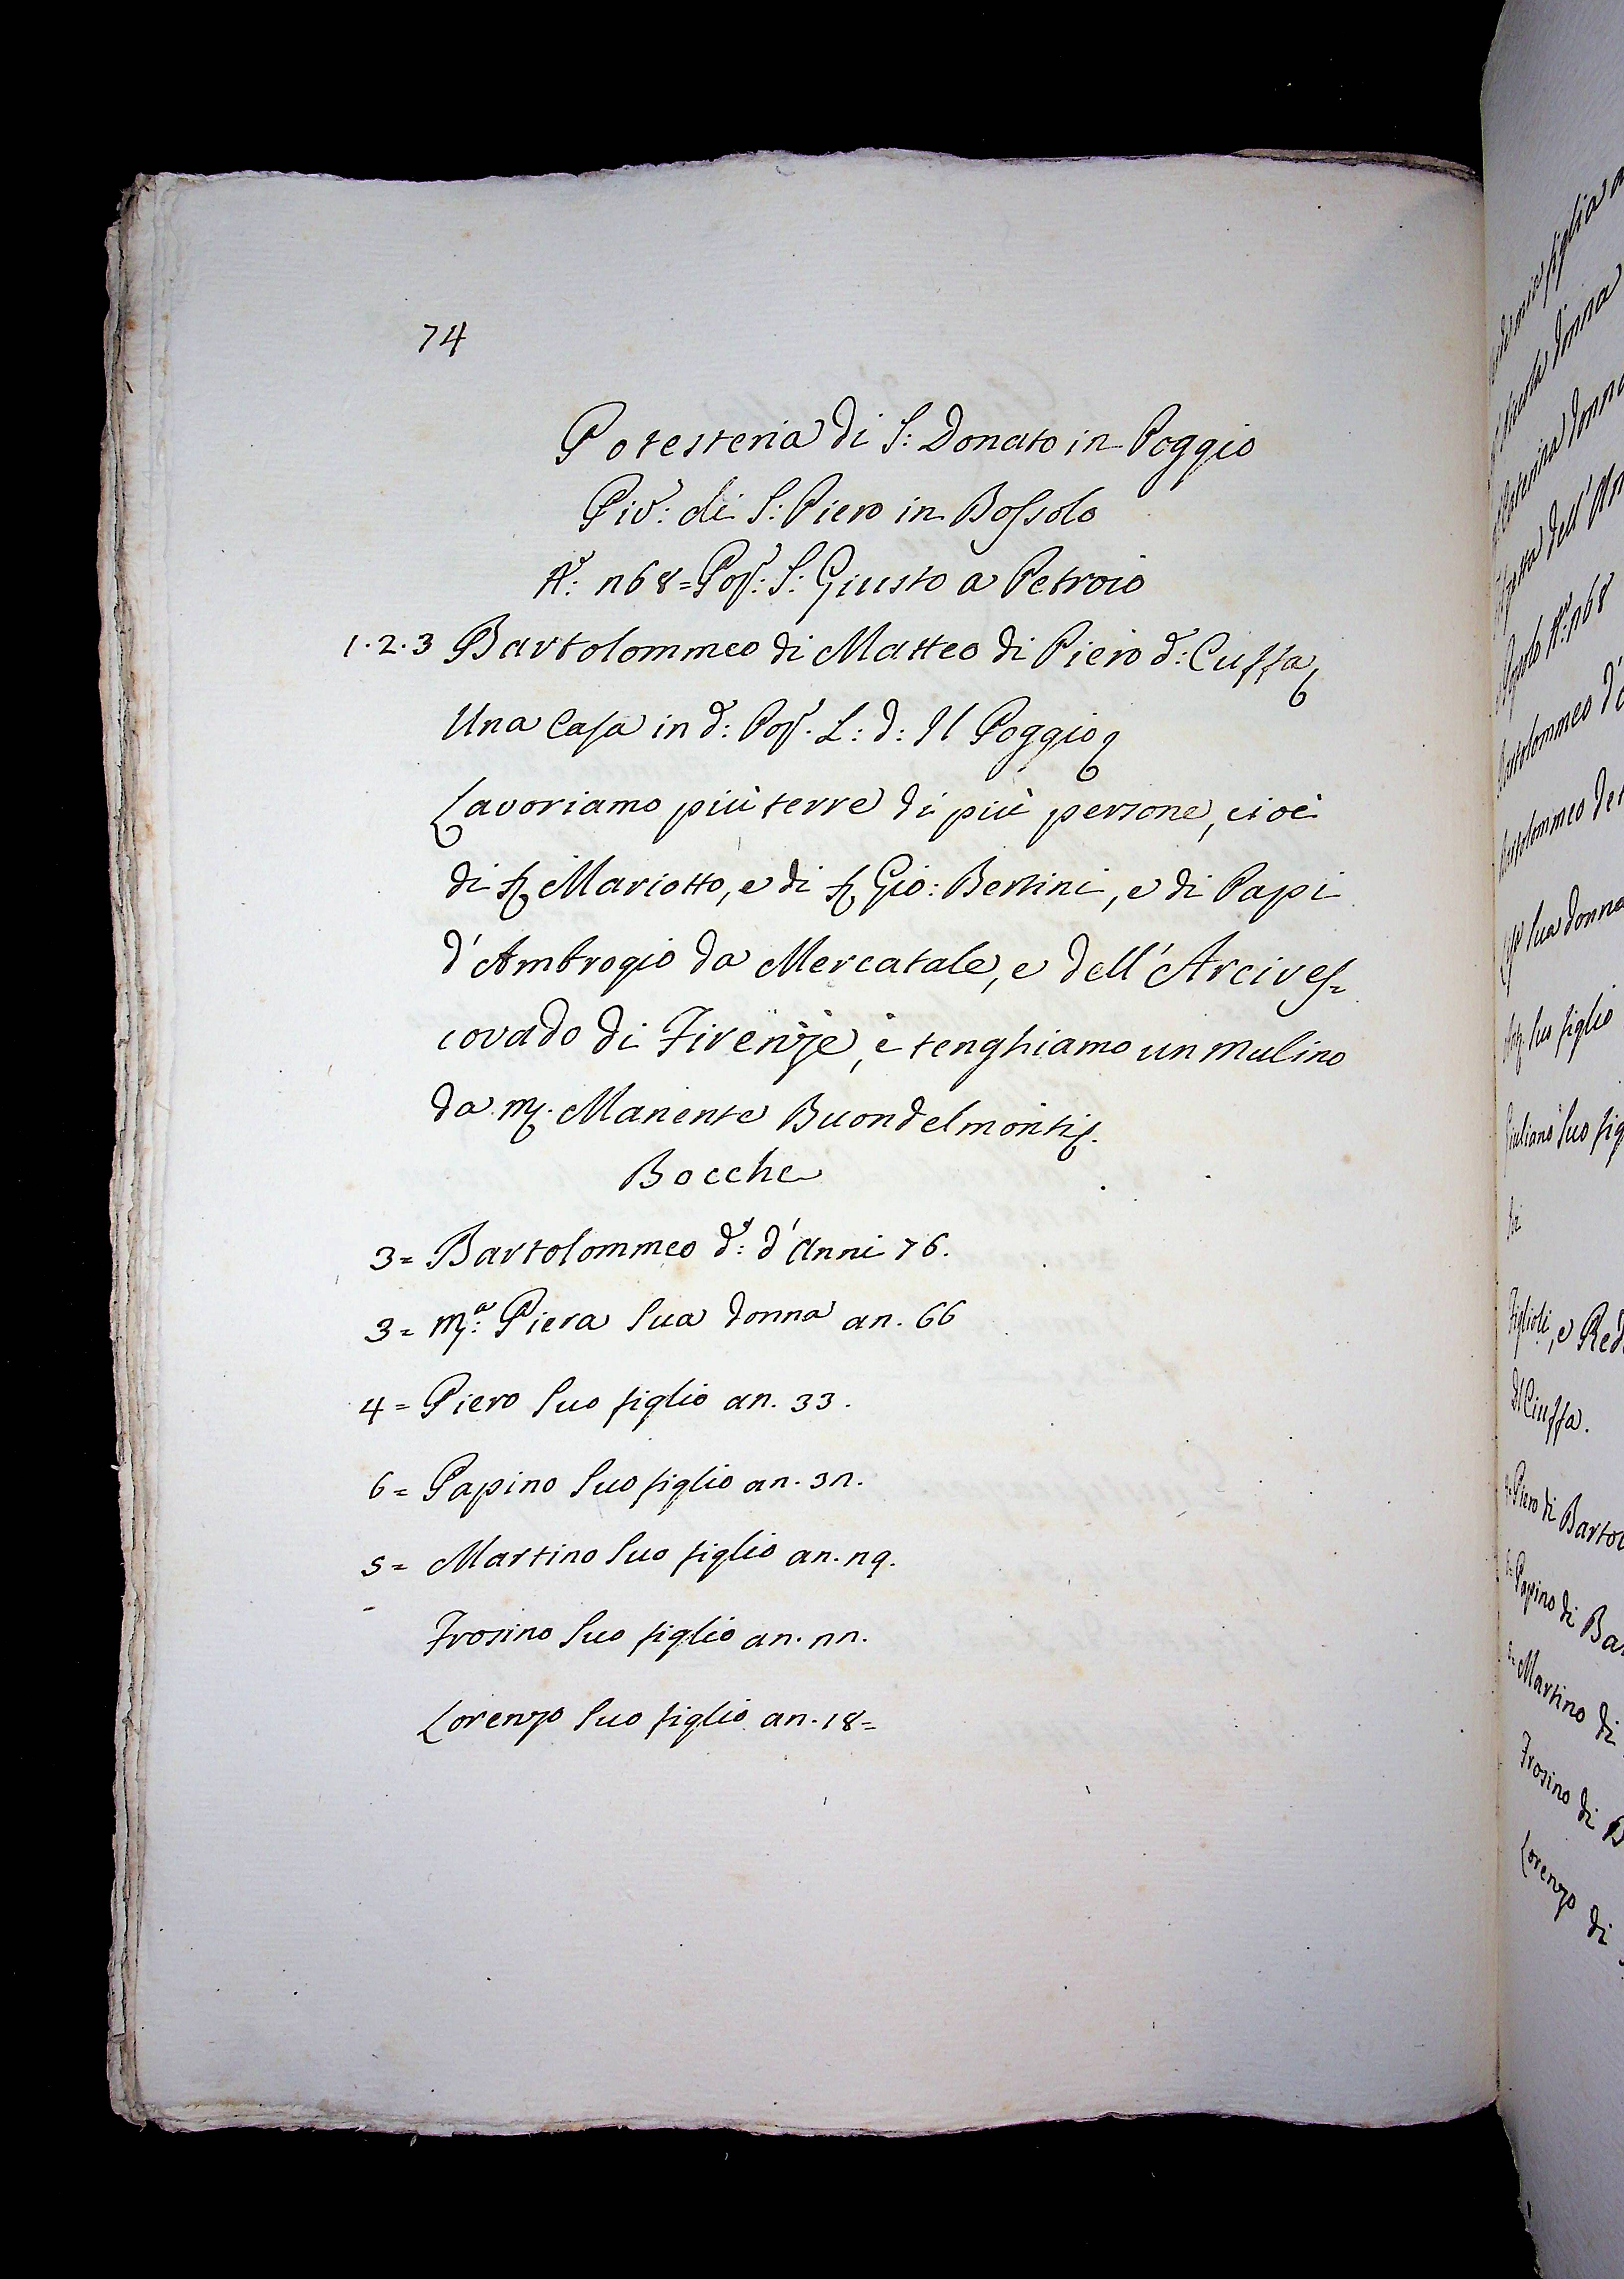 74
Potesteria di S: Donato in Poggio
Piv: di S: Piero in Bossolo
A: n68 = Pop: S: Giusto a Petroio
1.2.3 Bartolommeo di Matteo di Piero d: Ciuffa
Una Casa in d: Pop. L: d: Il Poggio
Lavoriamo più terre di più persone, cioè
di Mariotto, e di Gio: Bertini, e di Papi
d'Ambrogio da Mercatale, e dell'Arcives=
covado di Firenze, e tenghiamo un Mulino
da M. Manente Buondelmonti.
Bocche
3 = Bartolommeo d: d'Anni 76.
3 = M:a Piera Sua donna an. 66
4 = Piero Suo figlio an. 33.
6 = Papino Suo figlio an. 3n.
5 = Martino Suo figlio an. n9.
Frosino Suo figlio an. nn.
Lorenzo Suo figlio an. 18 =
figlia
donna
Caterina donna
dell'
Popolo A: n68
Bartolommeo d
Bartolommeo de
Sua donna
Suo figlio
Giuliano Suo fig
Figlioli, e Red
d Ciuffa.
Piero di Bartol
Papino di Ba
5 = Martino di
Frosino di B
Lorenzo di